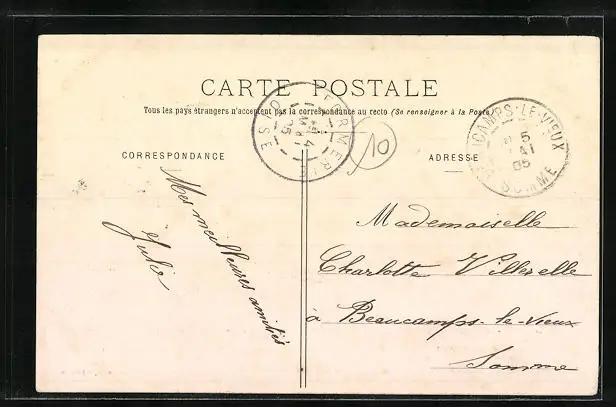 CARTE POSTALE
Tous les pays étrangers n'acceptent pas la correspondance au recto (Se renseigner à la Poste)
CORRESPONDANCE
ADRESSE
FORMERIE
OISE
4
05
10
CAMPS-LE-VIEUX
5
MAI
05
SOMME
Mes meilleures amitiés
Julie
Mademoiselle
Charlotte Villerelle
à Beaucamps-le-vieux
Somme